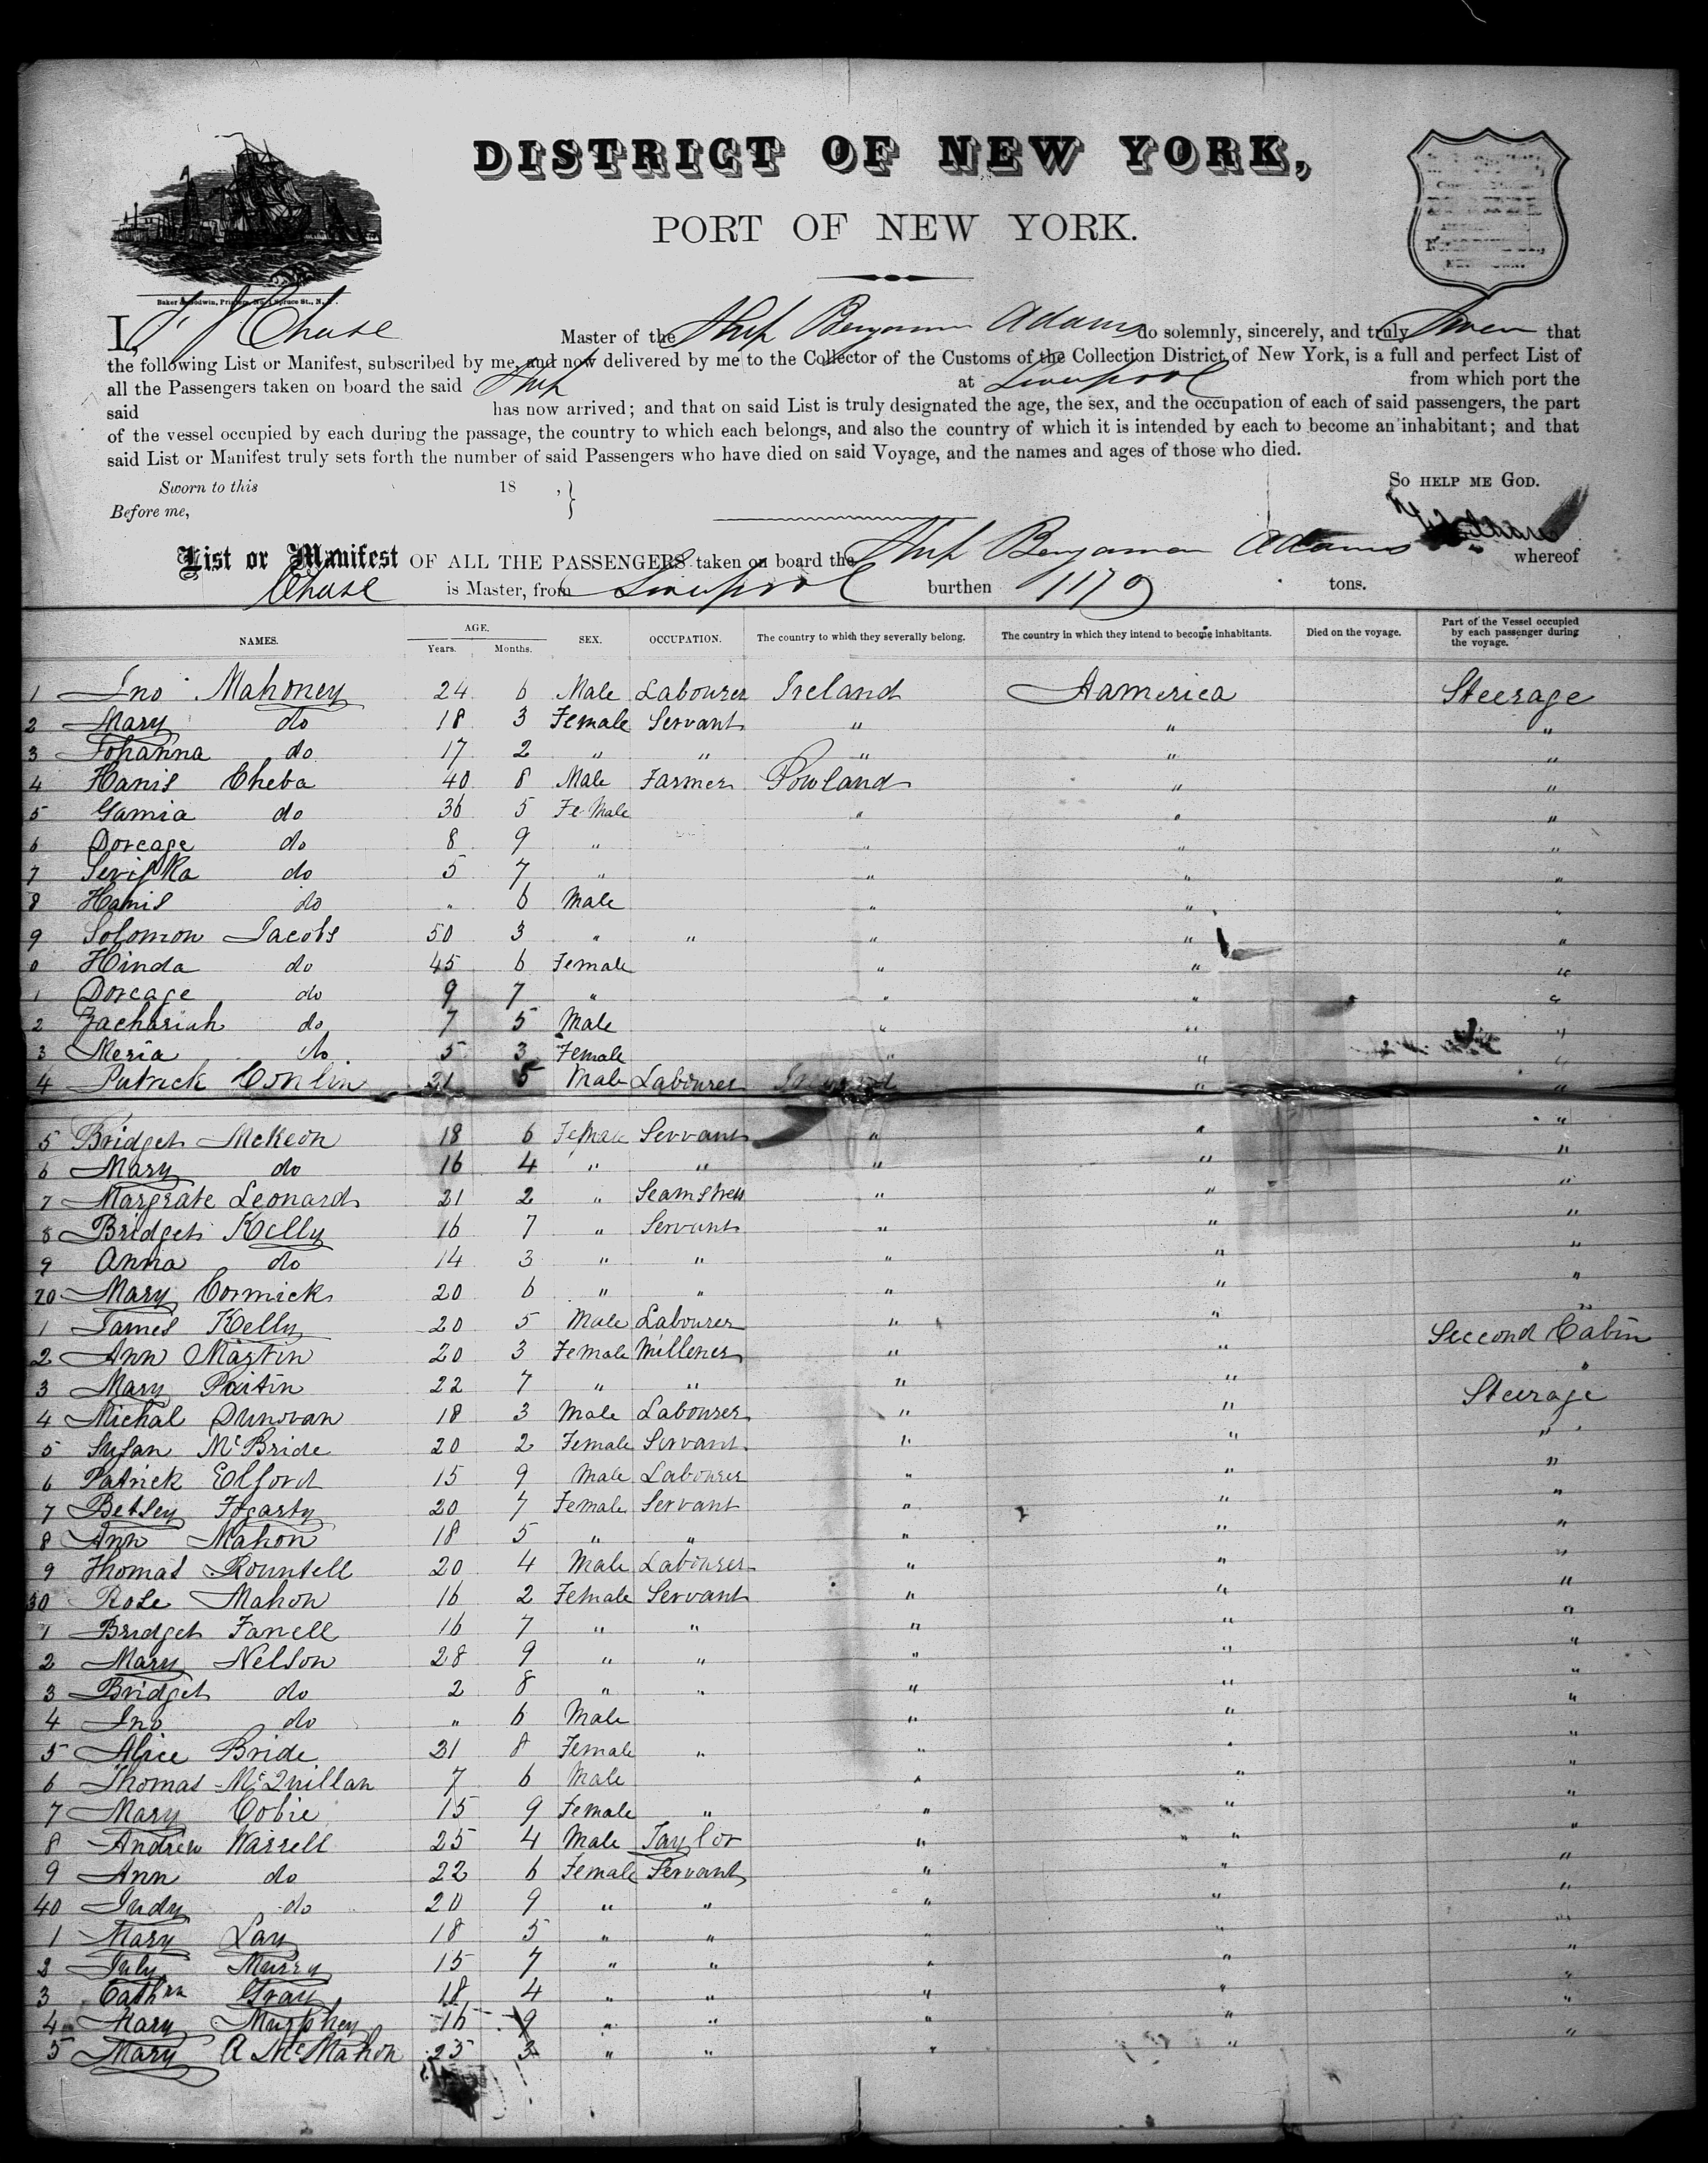 DISTRICT OF NEW YORK,
PORT OF NEW YORK.
Baker & Godwin, Printers, No. 1 Spruce St., N. Y.
I, Chase Master of the Ship Benjamin Adams do solemnly, sincerely, and truly Swear that
the following List or Manifest, subscribed by me, and now delivered by me to the Collector of the Customs of the Collection District of New York, is a full and perfect List of
all the Passengers taken on board the said Ship at Liverpool from which port the
said has now arrived; and that on said List is truly designated the age, the sex, and the occupation of each of said passengers, the part
of the vessel occupied by each during the passage, the country to which each belongs, and also the country of which it is intended by each to become an inhabitant; and that
said List or Manifest truly sets forth the number of said Passengers who have died on said Voyage, and the names and ages of those who died.
Sworn to this 18 , } SO HELP ME GOD.
Before me,
List or Manifest OF ALL THE PASSENGERS taken on board the Ship Benjamen Adams whereof
Chase is Master, from Liverpool burthen 1179 tons.
NAMES. AGE. Years. Months. SEX. OCCUPATION. The country to which they severally belong. The country in which they intend to become inhabitants. Died on the voyage. Part of the Vessel occupied by each passenger during the voyage.
1 Jno Mahoney 24 6 Male Labourer Ireland Hamerica Steerage
2 Mary do 18 3 Female Servant " " "
3 Johanna do 17 2 " " " " "
4 Hanis Cheba 40 8 Male Farmer Powland " "
5 Gamia do 36 5 Fe Male " " "
6 Dorcage do 8 9 " " " "
7 do 5 7 " " " "
8 Hanis do " 6 Male " " "
9 Solomon Jacobs 50 3 " " " " "
0 Hinda do 45 6 Female " " "
1 Dorcage do 9 7 " " " "
2 Zachariah do 7 5 Male " " "
3 Meria do 5 3 Female " " "
4 Patrick Conlin 21 5 Male Labourer " "
5 Bridget McKeon 18 6 Female Servant " " "
6 Mary do 16 4 " " " " "
7 Margrate Leonard 21 2 " Seamstress " " "
8 Bridget Kelly 16 7 " Servant " " "
9 Anna do 14 3 " " " " "
20 Mary Cormick 20 6 " " " " "
1 James Kelly 20 5 Male Labourer " " "
2 Ann Martin 20 3 Female Millener " " Second Cabin
3 Mary Partin 22 7 " " " " "
4 Michal Dunovan 18 3 Male Labourer " " Steerage
5 Susan McBride 20 2 Female Servant " " "
6 Patrick Elford 15 9 Male Labourer " " "
7 Betsey Fogarty 20 7 Female Servant " " "
8 Ann Mahon 18 5 " " " " "
9 Thomas Rountell 20 4 Male Labourer " " "
30 Rose Mahon 16 2 Female Servant " " "
1 Bridget Farrell 16 7 " " " " "
2 Mary Nelson 28 9 " " " " "
3 Bridget do 2 8 " " " " "
4 Jno do " 6 Male " " "
5 Alice Bride 21 8 Female " " " "
6 Thomas McQuillan 7 6 Male " " "
7 Mary Cobie 15 9 Female " " " "
8 Andrew Warrell 25 4 Male Taylor " " "
9 Ann do 22 6 Female Servant " " "
40 Judy do 20 9 " " " " "
1 Mary Lay 18 5 " " " " "
2 July Murry 15 7 " " " " "
3 Cathrn Gray 18 4 " " " " "
4 Mary Murphey 16 9 " " " " "
5 Mary A McMahon 23 3 " " " " "